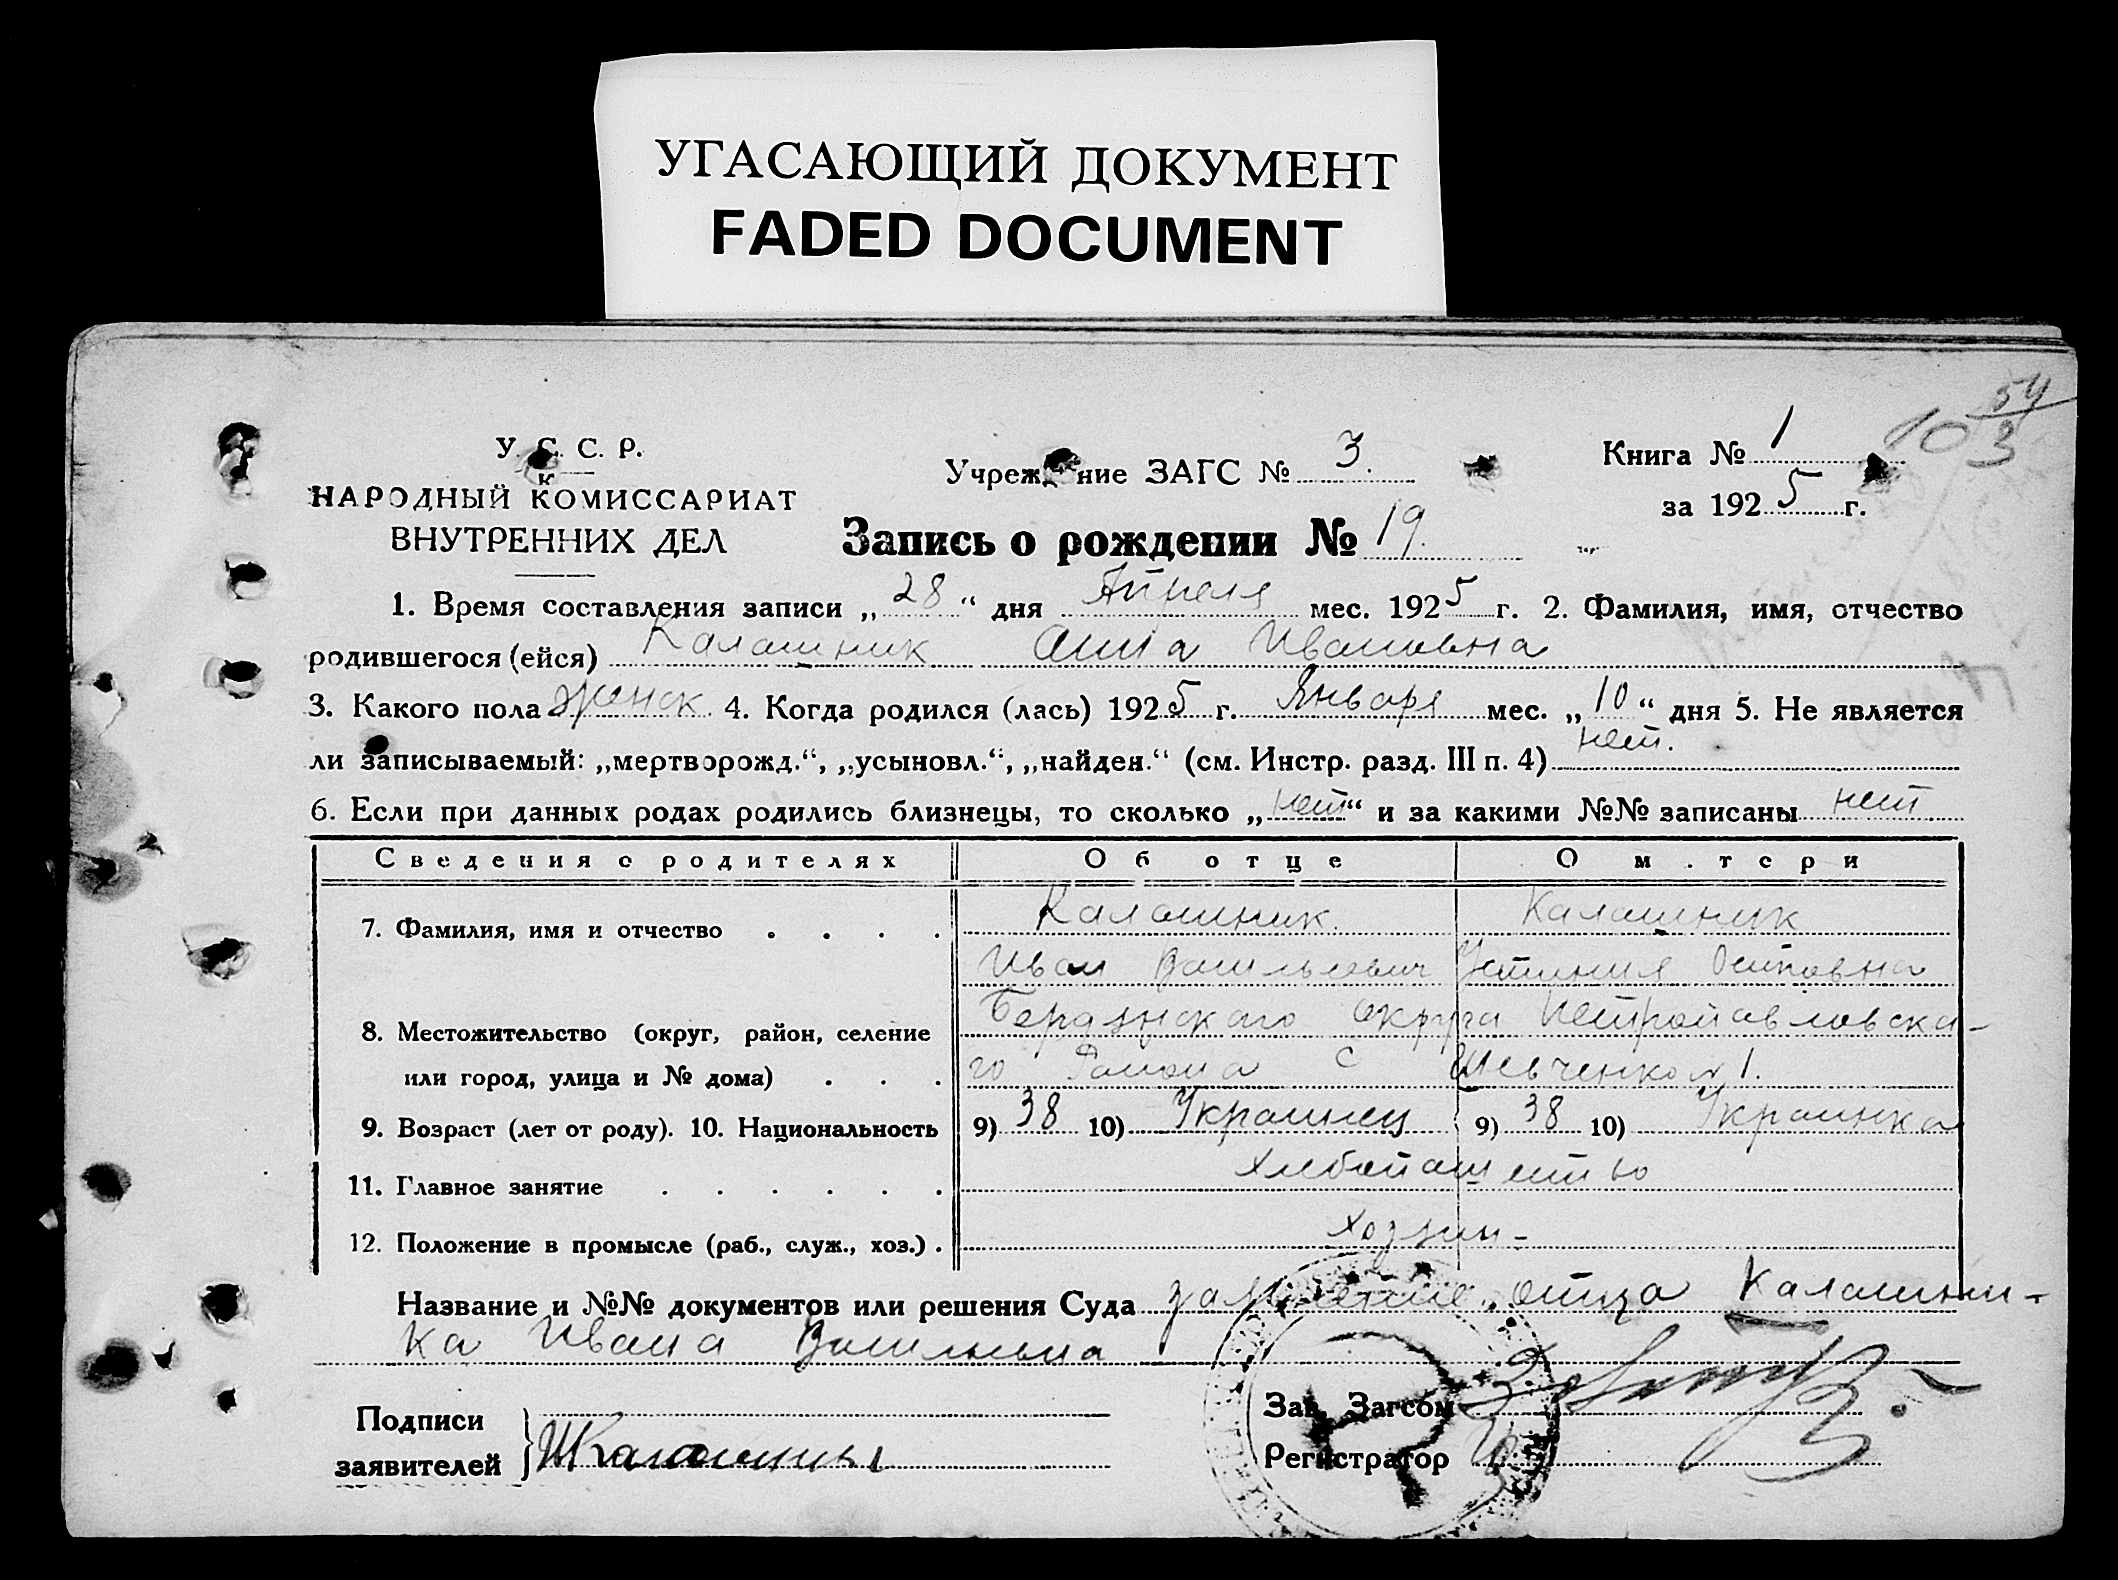 УГАСАЮЩИЙ ДОКУМЕНТ
FADED DOCUMENT
У. С. С. Р.
НАРОДНЫЙ КОМИССАРИАТ
ВНУТРЕННИХ ДЕЛ
Учреждение ЗАГС № 3.
Книга № 1
10 54/3
за 1925 г.
Запись о рождении № 19.
1. Время составления записи „28“ дня Апреля мес. 1925 г. 2. Фамилия, имя, отчество
родившегося (ейся) Калашник Анна Ивановна
3. Какого пола женск 4. Когда родился (лась) 1925 г. Января мес. „10“ дня 5. Не является
ли записываемый: „мертворожд.“, „усыновл.“, „найден.“ (см. Инстр. разд. III п. 4) нет.
6. Если при данных родах родились близнецы, то сколько „нет“ и за какими №№ записаны нет
Сведения о родителях Об отце О матери
7. Фамилия, имя и отчество . . . . Калашник. Калашник
Иван Васильевич Устиния Осиповна
8. Местожительство (округ, район, селение Бердянского округа Петропавловска-
или город, улица и № дома) . . . го Района с Шевченко № 1.
9. Возраст (лет от роду). 10. Национальность 9) 38 10) Украинец 9) 38 10) Украинка
11. Главное занятие . . . . . . Хлебопашество
12. Положение в промысле (раб., служ., хоз.) . хозяин-
Название и №№ документов или решения Суда заявление отца Калашни-
ка Ивана Васильева
Подписи
заявителей } Калашник
Зав. Загсом
Регистратор